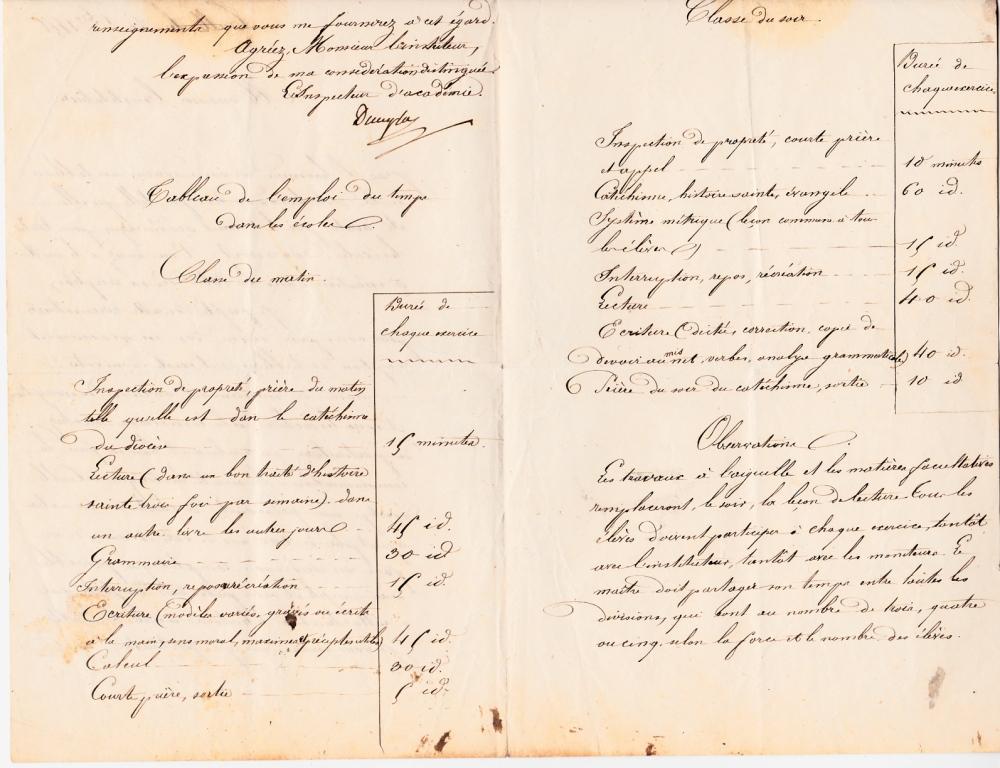 renseignements que vous me fournirez à cet égard.
Agréez, Monsieur l'instituteur,
l'expression de ma considération distinguée
L'Inspecteur d'académie.
Tableau de l'emploi du temps
dans les écoles.
Classe du matin.
Durée de
chaque exercice
Inspection de propreté, prière du matin
telle qu'elle est dans le catéchisme
du diocèse 15 minutes.
Lecture (dans un bon traité d'histoire
sainte trois fois par semaine) dans
un autre livre les autres jours 45 id.
Grammaire 30 id
Interruption, repos, récréation 15 id.
Ecriture (modèles variés, gravés ou écrits
à la main, sens moral, maximes et préceptes utiles) 45 id.
Calcul 30 id.
Courte prière, sortie 5 id.
Classe du soir.
Durée de
chaque exercice
Inspection de propreté, courte prière
et appel 10 minutes
Catéchisme, histoire sainte, évangile 60 id.
Système métrique (leçon commune à tous
les élèves) 15 id.
Interruption, repos, récréation 15 id.
Lecture 40 id.
Ecriture (dictée, correction, copie de
devoir mis au net, verbes, analyse grammaticale) 40 id.
Prière du soir du catéchisme, sortie 10 id
Observations.
Les travaux à l'aiguille et les matières facultatives
remplaceront, le soir, la leçon de lecture. Tous les
élèves doivent participer à chaque exercice, tantôt
avec l'instituteur, tantôt avec les moniteurs. Le
maître doit partager son temps entre toutes les
divisions, qui sont au nombre de trois, quatre
ou cinq, selon la force et le nombre des élèves.